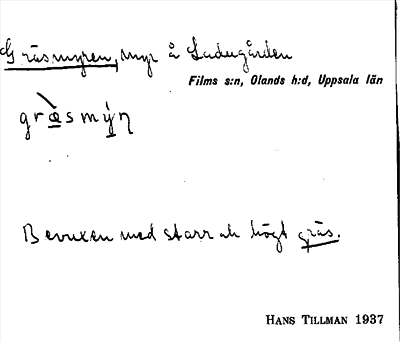 Gräsmyren, myr å Ladugården
Films s:n, Olands h:d, Uppsala län
græsmýn
Bevuxen med starr och högt gräs.
HANS TILLMAN 1937